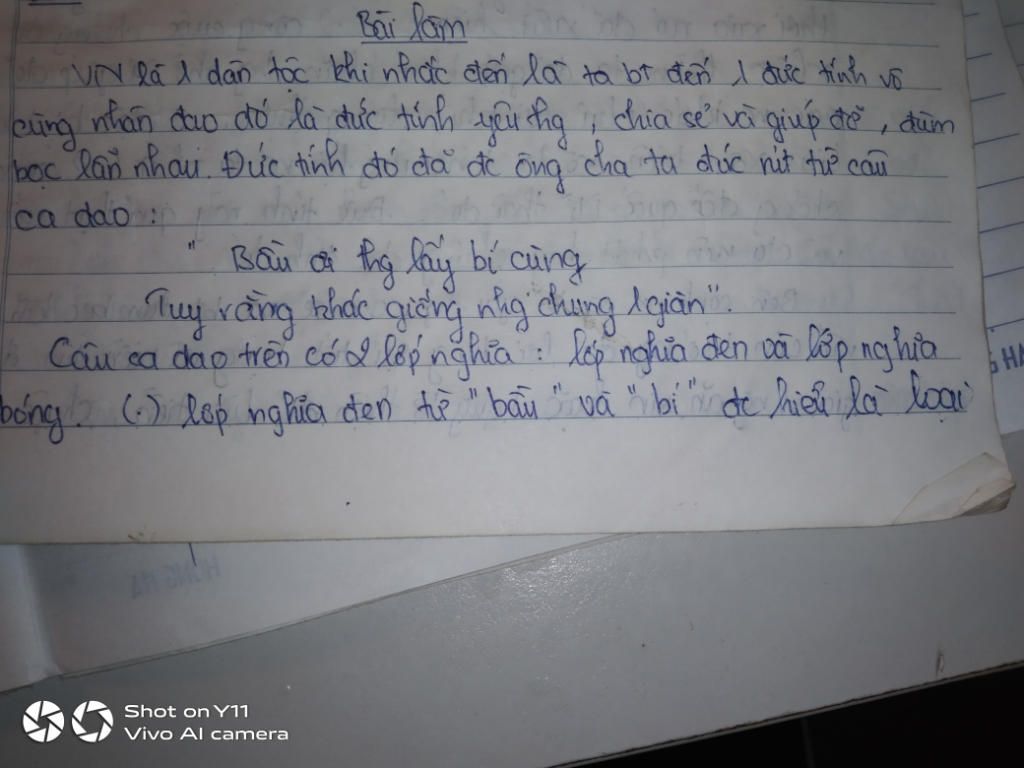 Bài làm
VN là 1 dân tộc khi nhắc đến là ta bt đến 1 đức tính vô
cùng nhân đạo đó là đức tính yêu thg, chia sẻ và giúp đỡ, đùm
bọc lẫn nhau. Đức tính đó đã đc ông cha ta đúc rút từ câu
ca dao:
" Bầu ơi thg lấy bí cùng
Tuy rằng khác giống nhg chung 1 giàn".
Câu ca dao trên có 2 lớp nghĩa: lớp nghĩa đen và lớp nghĩa
bóng. (.) lớp nghĩa đen từ "bầu" và "bí" đc hiểu là loại
HONG HA
G HA
Shot on Y11
Vivo AI camera